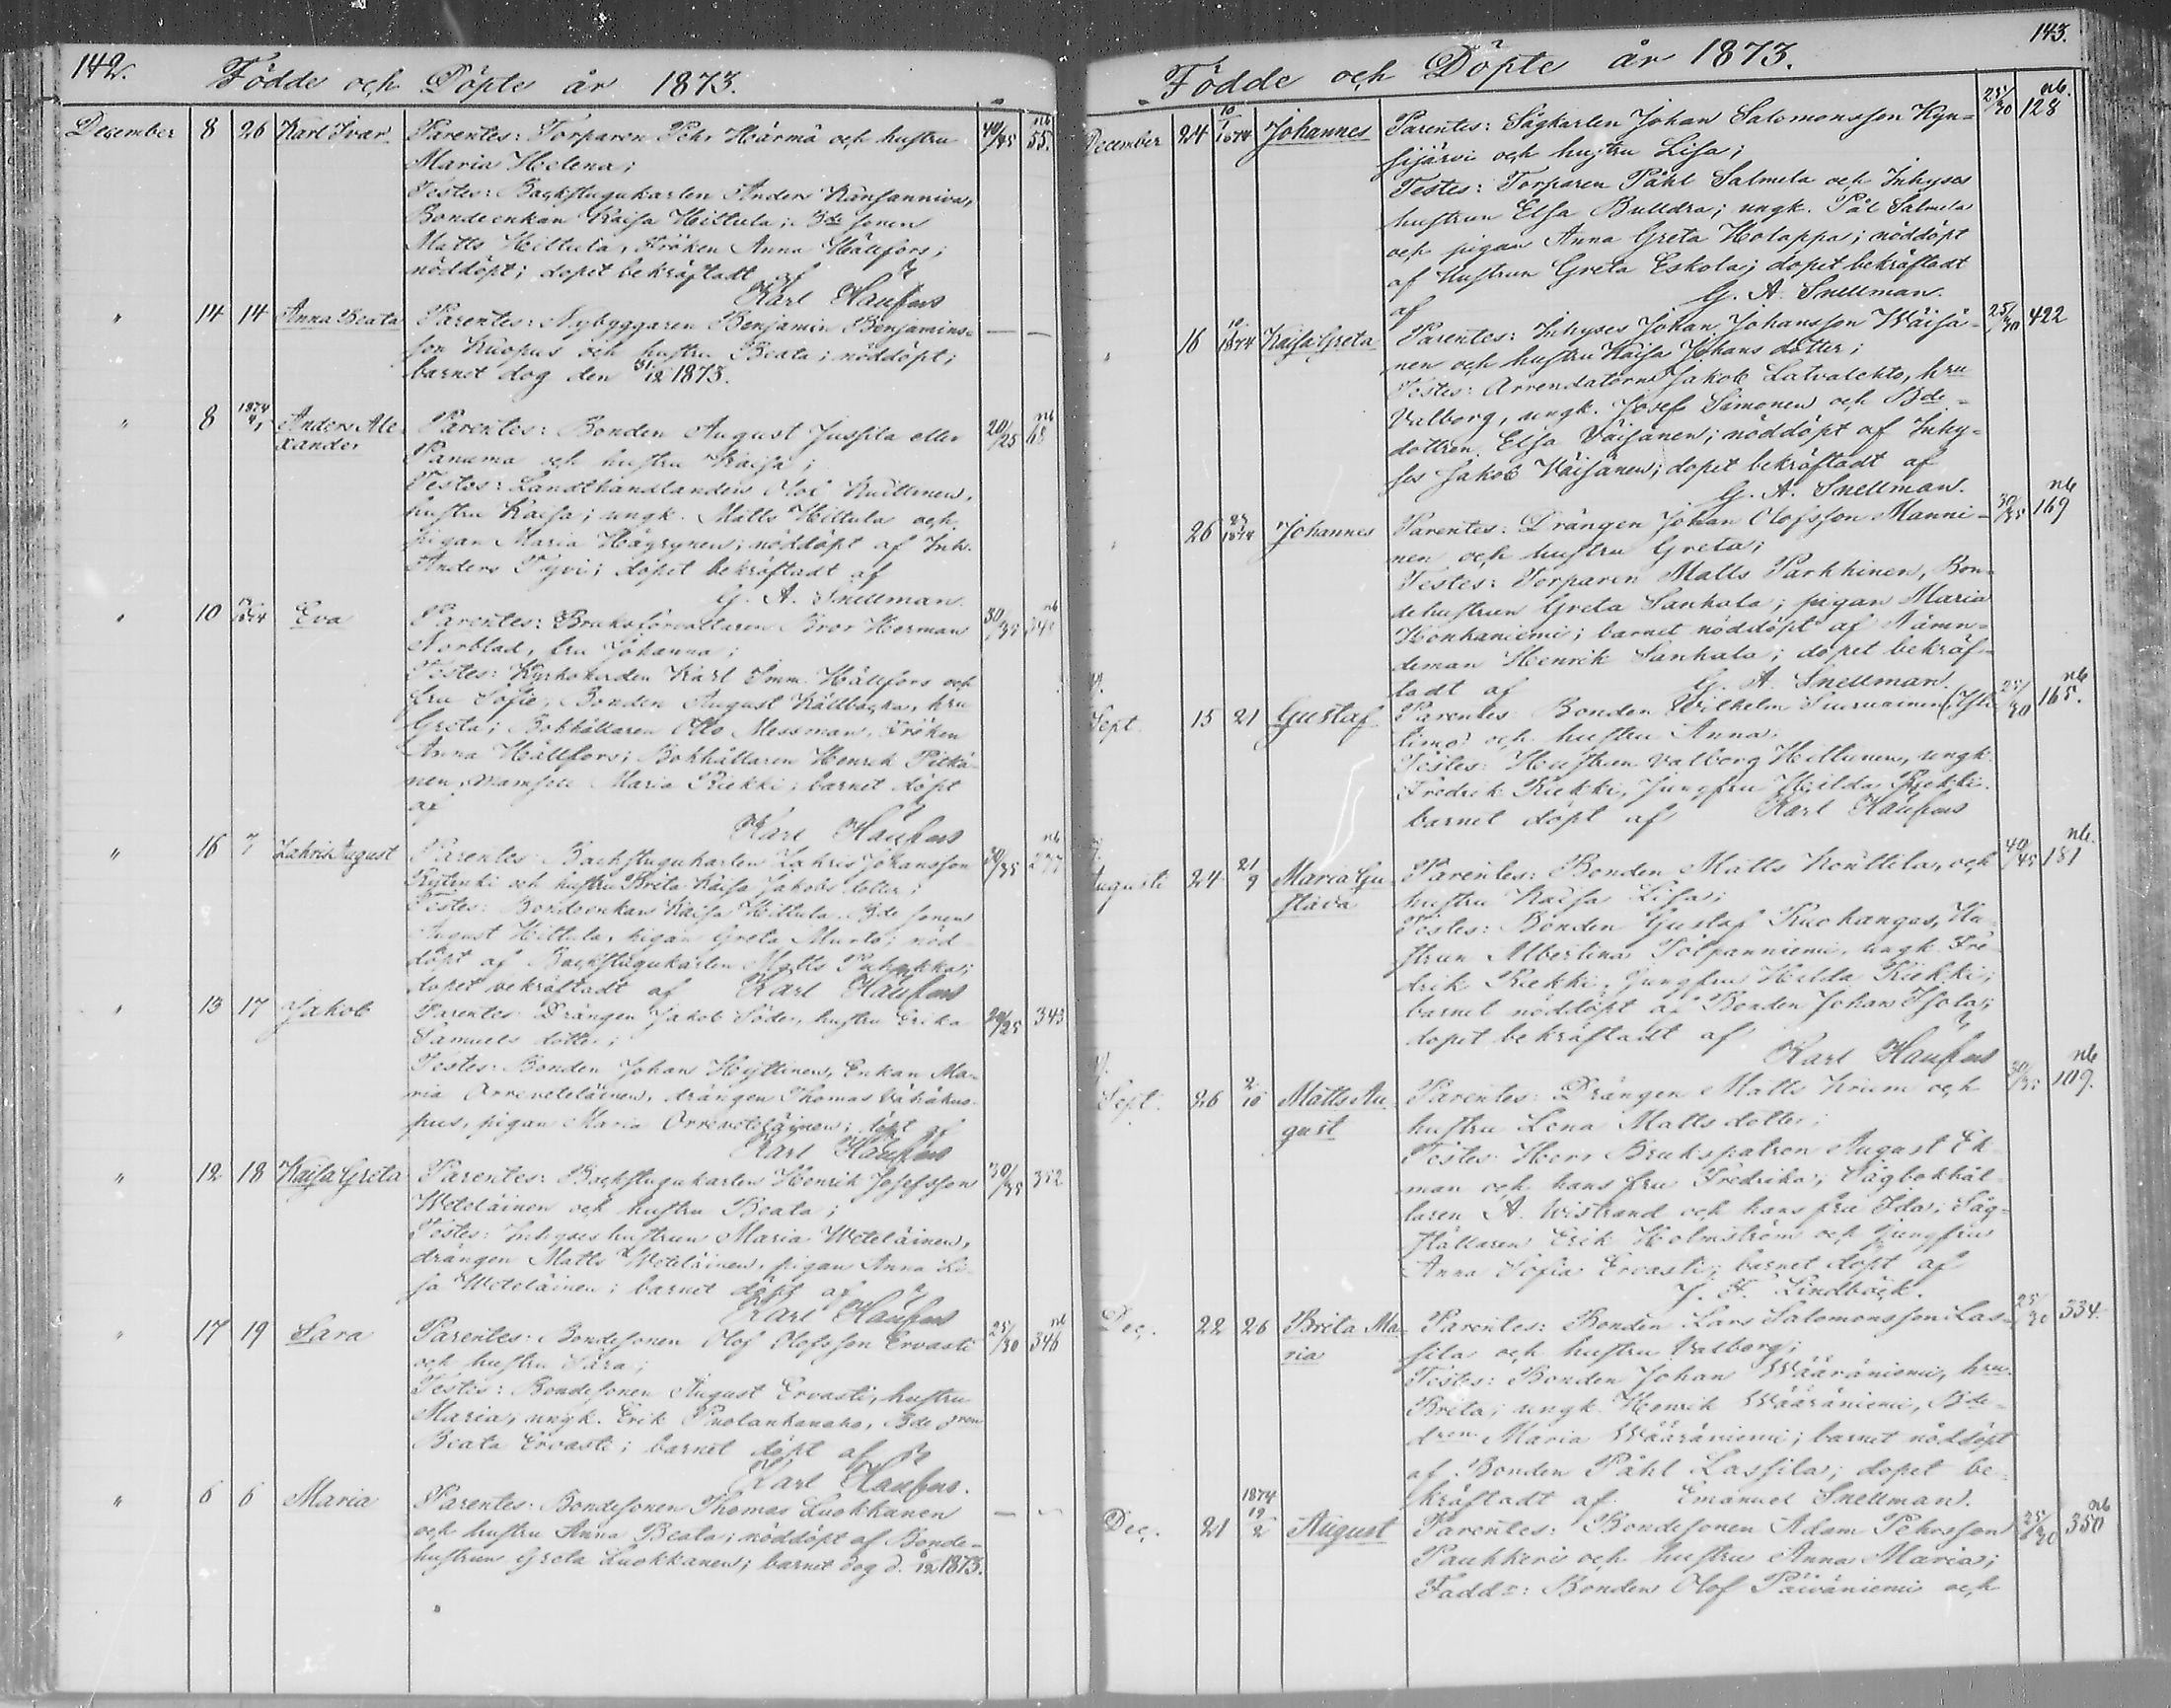 142.
Födde och Döpte år 1873.
December 8 26 Karl Ivar Parentes: Torparen Pehr Härmä och hustru 40/45 nb 55.
Maria Helena;
Testes: Backstugukarlen Anders Kansanniva,
Bondeenkan Kaisa Hiltula; Bde sonen
Matts Hiltula, Fröken Anna Hällfors;
nöddöpt; dopet bekräftadt af
Karl
" 14 14 Anna Beata Parentes: Nybyggaren Benjamin Benjamins-
son Kuopus och hustru Beata; nöddöpt; — —
barnet dog den 31/12 1873.
" 8 1874 Anders Ale- Parentes: Bonden August Jussila eller 20/25 nb 68
xander Panuma och hustru Kaisa;
Testes: Landthandlanden Olof
hustru Kaisa; ungk. Matts Hiltula och
pigan Maria Hägrynen; nöddöpt af Inh.
Anders Tyvi; dopet bekräftadt af
G. A. Snellman.
" 10 1874 Eva Parentes: Bruksförvaltaren Bror Herman 30/35 nb
Norblad, fru Johanna;
Testes: Kyrkoherden Karl Imm. Hällfors och
fru Sofie, Bonden August Källbacka, hru
Greta; Bokhållaren Otto Messman, Fröken
Anna Hällfors; Bokhållaren Henrik Pitkä-
nen, mamsell Maria Riekki; barnet döpt
af
Karl
" 16 7 Zakris August Parentes: Backstugukarlen Zakris Johansson 30/35 nb 277
och hustru Brita Kaisa Jakobs dotter;
Testes: Bondeenkan Kaisa Hiltula, Bde sonen
August Hiltula, pigan Greta Murto; nöd-
döpt af Backstugukarlen Matts Puhakka;
dopet bekräftadt af Karl
" 13 17 Jakob Parentes: Drängen Jakob Söder, hustru Erika 20/25 343
Samuels dotter;
Testes: Bonden Johan Heyttinen, Enkan Ma-
ria Orreveteläinen, drängen Thomas Vähäkuo-
pus, pigan Maria Orreveteläinen; döpt af
Karl
" 12 18 Kaisa Greta Parentes: Backstugukarlen Henrik Josefsson 30/35 352
Weteläinen och hustru Beata;
Testes: Inhyses hustrun Maria Weteläinen,
drängen Matts Weteläinen, pigan Anna Li-
sa Weteläinen; barnet döpt af
Karl
" 17 19 Sara Parentes: Bondesonen Olof Olofsson Ervasti 25/30 nb 346
och hustru Sara;
Testes: Bondesonen August Ervasti, hustru
Maria; ungk. Erik Puolankanaho, Bde dren
Beata Ervasti; barnet döpt af
Karl
" 6 6 Maria Parentes: Bondesonen Thomas Luokkanen — —
och hustru Anna Beata; nöddöpt af Bonde-
hustrun Greta Luokkanen; barnet dog d. 6/12 1873.
143.
Födde och Döpte år 1873.
December 24 10/1 1874 Johannes Parentes: Sågkarlen Johan Salomonsson Kyn- 25/30 nb. 128
sijärvi och hustru Lisa;
Testes: Torparen Påhl Salmela och Inhyses
hustrun Elsa Bulldra; ungk. Pål Salmela
och pigan Anna Greta Holappa; nöddöpt
af hustrun Greta Eskola; dopet bekräftadt
af G. A. Snellman.
" 16 1874 Kaisa Greta Parentes: Inhyses Johan Johansson Wäisä- 25/30 422
nen och hustru Kaisa Johans dotter;
Testes: Arrendatorn Jakob Latvalehto, hru
Valborg, ungk. Josef Simonen och Bde-
dottren Elsa Väisänen; nöddöpt af Inhy-
ses Jakob Väisänen; dopet bekräftadt af
G. A. Snellman.
" 26 1874 Johannes Parentes: Drängen Johan Olofsson Manni- 30/35 nb 169
nen och hustru Greta;
Testes: Torparen Matts Parkkinen, Bon-
dehustrun Greta Sankala; pigan Maria
Honkaniemi; barnet nöddöpt af Nämn-
deman Henrik Sankala; dopet bekräf-
tadt af G. A. Snellman.
Sept. 15 21 Gustaf Parentes: Bonden Wilhelm Suuruainen 25/30 nb 165.
och hustru Anna;
Testes: Hustrun Valborg Heltunen, ungk.
Fredrik Riekki, Jungfru Hilda Riekki.
barnet döpt af Karl
Augusti 24 21/9 Maria Gu- Parentes: Bonden Matts Kouttila, och 40/45 nb. 181
stava hustru Kaisa Lisa;
Testes: Bonden Gustaf Ruokangas, Hu-
strun Albertina Tolpanniemi, ungk. Fre-
drik Riekki, Jungfru Hilda Riekki;
barnet nöddöpt af Bonden Johan Isola;
dopet bekräftadt af
Karl
Sept. 26 2/10 Matts Au- Parentes: Drängen Matts Krum och nb 109.
gust hustru Lena Matts dotter;
Testes: Herr Brukspatron August Ek-
man och hans fru Fredrika; Sågbokhål-
laren A. Wistrand och hans fru Ida; Såg-
ställaren Erik Holmström och jungfru
Anna Sofia Ervasti; barnet döpt af
J. F. Lindbäck.
Dec. 22 26 Brita Ma- Parentes: Bonden Lars Salomonsson Las- 25/30 334.
ria sila och hustru Valborg;
Testes: Bonden Johan Wääräniemi, hru
Brita; ungk. Henrik Wääräniemi, Bde-
dren Maria Wääräniemi; barnet nöddöpt
af Bonden Påhl Lassila; dopet be-
kräftadt af Emanuel Snellman.
Dec. 21 1874 19/2 August Parentes: Bondesonen Adam Pehrsson 25/30 nb 350
Paukkeri och hustru Anna Maria;
Faddr: Bonden Olof Päiväniemi och